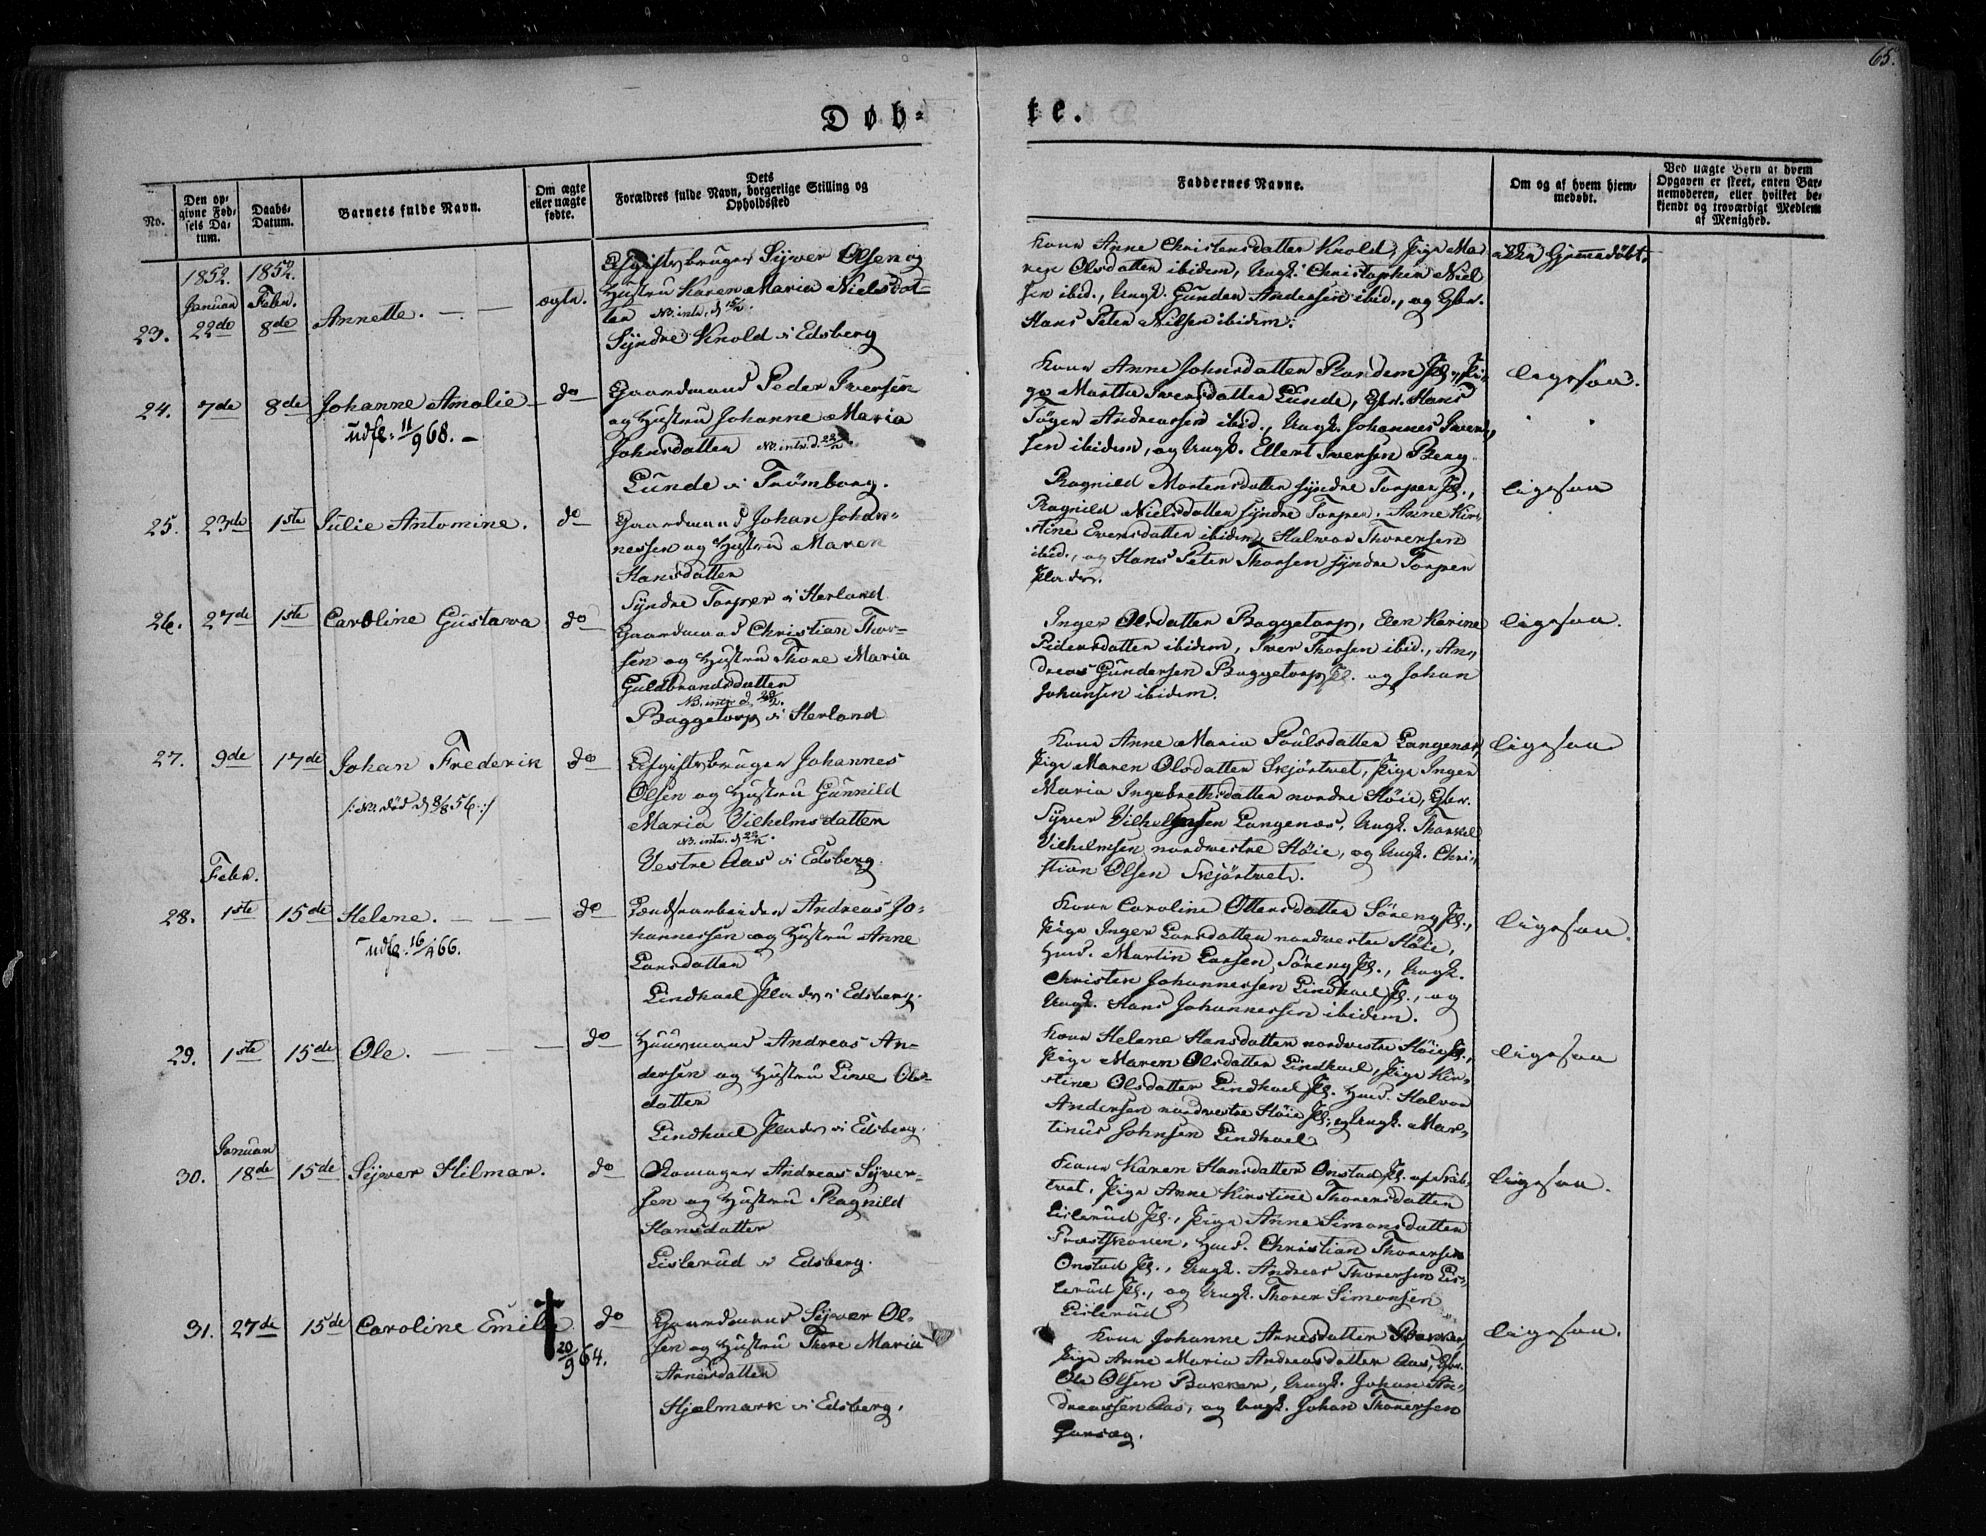 65.
Døb-
te.
No.
Den op-
givne Fød-
sels Da-
tum.
Daabs-
Datum.
Barnets fulde Navn.
Om ægte
eller uægte
fødte.
Dets
Forældres fulde Navn, borgerlige Stilling og
Opholdssted
Faddernes Navne.
Om og af hvem hjem-
medøbt.
Ved uægte Børn af hvem
Opgaven er skeet, enten Bar-
nemoderen, eller hvilket be-
kjendt og troværdigt Medlem
af Menighed.
1852. 1852.
Januar Febr.
23. 22de 8de Annette. ægte.
Afgiftsbruger Syver Olsen og
Hustru Karen Maria Nielsdat-
ter
Syndre Knold i Edsberg
Kone Anne Christensdatter Knold, Pige Ma-
ren Olsdatter ibidem, Ungk. Christopher Niel-
sen ibid., Ungk. Gunder Andersen ibid., og Gbr.
Hans Peter Nilsen ibidem.
24. 7de 8de Johanne Amalie do
udfl. 11/9 68.
Gaardmand Peder Iversen
og Hustru Johanne Maria
Johnsdatter
Lunde i Trømborg.
Kone Anne Johnsdatter Randem Pl., Pi-
ge Marthe Iversdatter Lunde, Gbr. Hans
Andreassen ibid., Ungk. Johannes Iver-
sen ibidem, og Ungk. Ellert Iversen Berg
ligesaa.
25. 23de 1ste Julie Antomine. do
Gaardmand Johan Johan-
nessen og Hustru Maren
Hansdatter
Syndre Torper i Herland
Ragnild Mortensdatter syndre Torper Pl.,
Ragnild Nielsdatter syndre Torper, Anne Kir-
stine Evensdatter ibidem, Halvor Thorersen
ibid., og Hans Peter Thorsen syndre Torper
Plads.
ligesaa
26. 27de 1ste Caroline Gustava do
Gaardmand Christian Thor-
sen og Hustru Thore Maria
Guldbrandsdatter
Baggetorp i Herland
Inger Olsdatter Baggetorp, Elen Karine
Pedersdatter ibidem, Iver Thorsen ibid., An-
dreas Gundersen Baggetorp Pl. og Johan
Johansen ibidem.
ligesaa.
27. 9de 17de Johan Frederik do
/: NB. død d. 8/8 56 :/
Afgiftsbruger Johannes
Olsen og Hustru Gunnild
Maria Vilhelmsdatter
Vestre Aas i Edsberg.
Kone Anne Maria Poulsdatter Langenæs,
Pige Maren Olsdatter Skjørtvet, Pige Inger
Maria Ingebrethsdatter nordre Høie, Gbr.
Syver Vilhelmsen Langenæs, Ungk. Thorkel
Vilhelmsen nordvestre Høie, og Ungk. Chri-
stian Olsen Skjørtvet.
ligesaa
Febr.
28. 1ste 15de Helene. do
udfl. 16/4 66.
Landarbeider Andreas Jo-
hannessen og Hustru Anne
Larsdatter
Lindhael Plads i Edsberg.
Kone Caroline Ottersdatter Søreng Pl.,
Pige Inger Larsdatter nordvestre Høie,
Hmd. Martin Larsen Søreng Pl., Ungk.
Christen Johannessen Lindhael Pl., og
Ungk. Hans Johannessen ibidem.
ligesaa.
29. 1ste 15de Ole. do
Huusmand Andreas An-
dersen og Hustru Line Ols-
datter
Lindhael Plads i Edsberg.
Kone Helene Hansdatter nordvestre Høie Pl.,
Pige Maren Olsdatter Lindhael, Pige Kir-
stine Olsdatter Lindhael Pl. Hmd. Halvor
Andersen nordvestre Høie Pl. og Ungk. Mar-
tinus Johnsen Lindhael
ligesaa
Januar
30. 18de 15de Syver Hilmar. do
Skomager Andreas Syver-
sen og Hustru Ragnild
Hansdatter
Eislerud i Edsberg.
Kone Karen Hansdatter Onstad Pl. af
Pige Anne Kirstine Thorersdatter
Eislerud Pl., Pige Anne Simonsdatter
Hmd. Christian Thorersen
Onstad Pl., Ungk. Andreas Thorersen Eis-
lerud Pl., og Ungk. Thorer Simonsen
Eislerud
ligesaa.
31. 27de 15de Caroline Emilie do
20/9 64.
Gaardmand Syver Ol-
sen og Hustru Thore Maria
Arnesdatter
Hjelmark i Edsberg.
Kone Johanne Arnesdatter Bakker,
Pige Anne Maria Andreasdatter Aas, Gbr.
Ole Olsen Bakker, Ungk. Johan An-
dreassen Aas, og Ungk. Johan Thorersen
ligesaa.